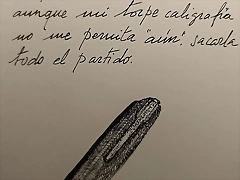 aunque mi torpe caligrafía
no me permita "aún". sacarla
todo el partido.